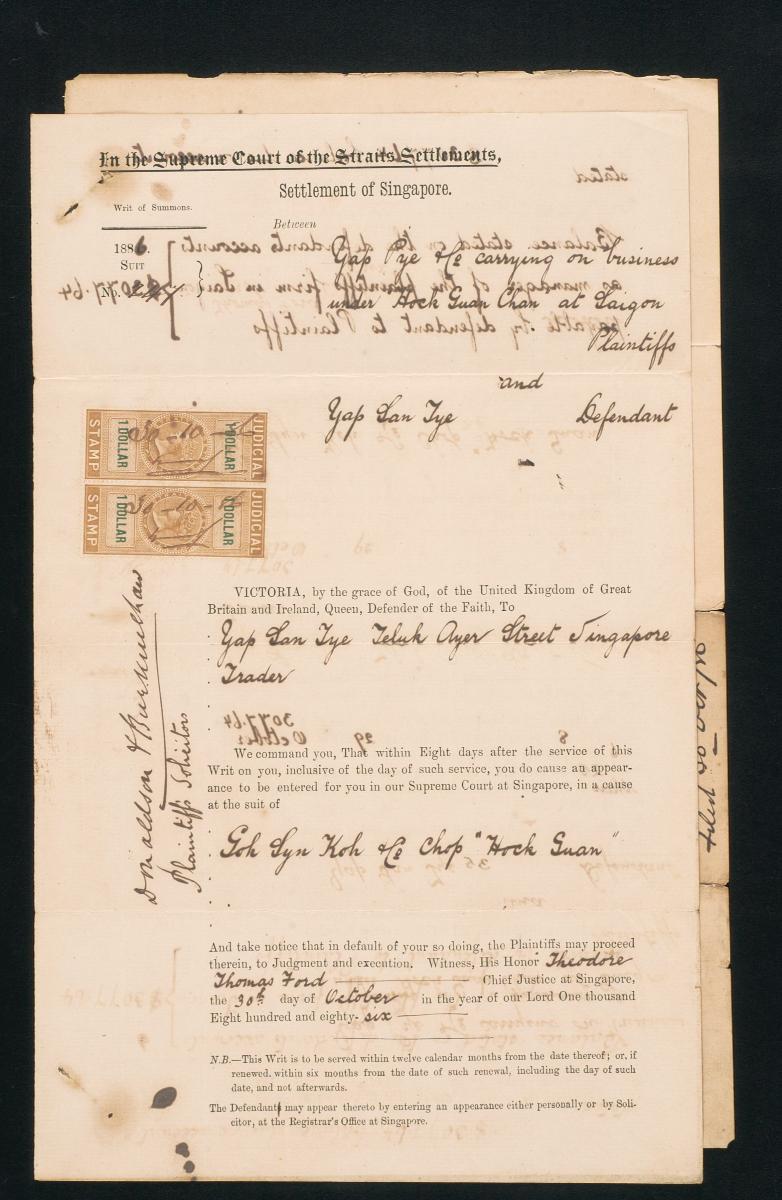 In the Supreme Court of the Straits Settlements,
Settlement of Singapore.
Writ of Summons.
Between
1886.
SUIT
No.
Yap Pye & Co carrying on business
under Hock Guan Chan at Saigon
Plaintiffs
and
Yap San Tye Defendant
JUDICIAL
1 DOLLAR
1 DOLLAR
STAMP
30-10-86
JUDICIAL
1 DOLLAR
1 DOLLAR
STAMP
30-10-86
Donaldson & Burkinshaw
Plaintiffs Solicitors
VICTORIA, by the grace of God, of the United Kingdom of Great
Britain and Ireland, Queen, Defender of the Faith, To
Yap San Tye Teluk Ayer Street Singapore
Trader
We command you, That within Eight days after the service of this
Writ on you, inclusive of the day of such service, you do cause an appear-
ance to be entered for you in our Supreme Court at Singapore, in a cause
at the suit of
Goh Syn Koh & Co Chop "Hock Guan"
And take notice that in default of your so doing, the Plaintiffs may proceed
therein, to Judgment and execution. Witness, His Honor Theodore
Thomas Ford Chief Justice at Singapore,
the 30th day of October in the year of our Lord One thousand
Eight hundred and eighty-six
N.B.—This Writ is to be served within twelve calendar months from the date thereof; or, if
renewed. within six months from the date of such renewal, including the day of such
date, and not afterwards.
The Defendant may appear thereto by entering an appearance either personally or by Soli-
citor, at the Registrar's Office at Singapore.